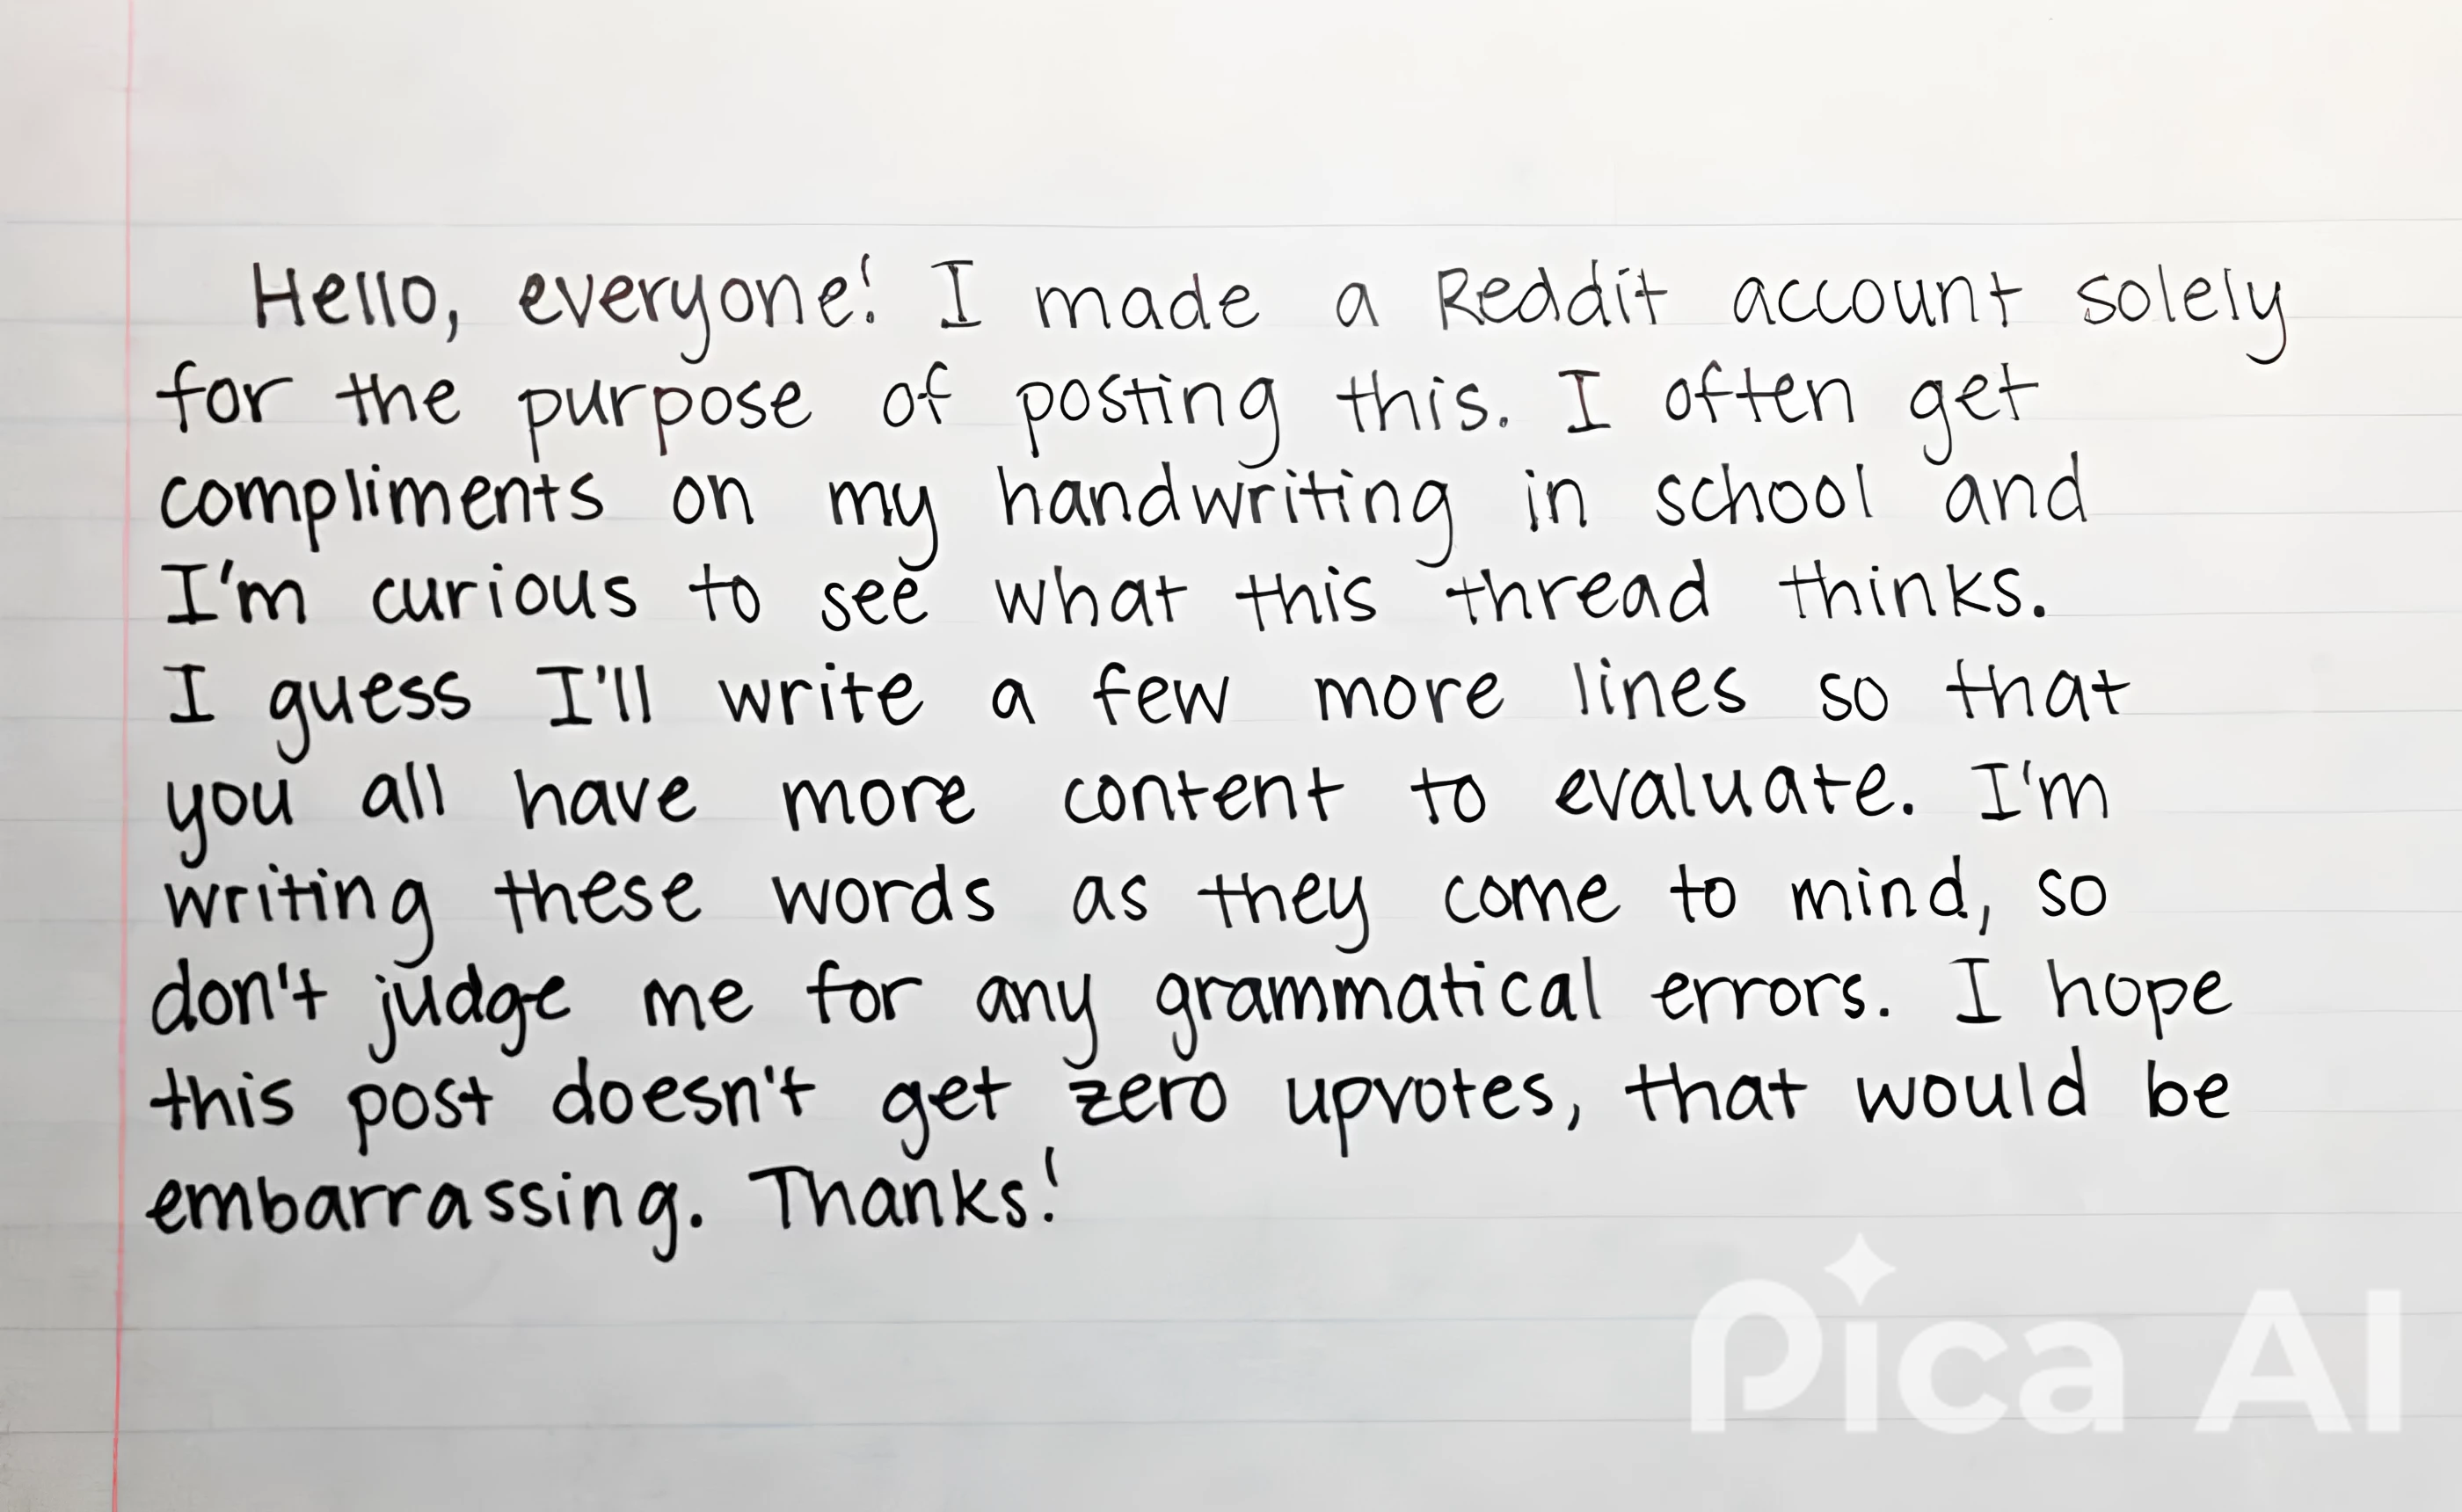 Hello, everyone! I made a Reddit account solely
for the purpose of posting this. I often get
compliments on my handwriting in school and
I'm curious to see what this thread thinks.
I guess I'll write a few more lines so that
you all have more content to evaluate. I'm
writing these words as they come to mind, so
don't judge me for any grammatical errors. I hope
this post doesn't get zero upvotes, that would be
embarrassing. Thanks!
Pica AI